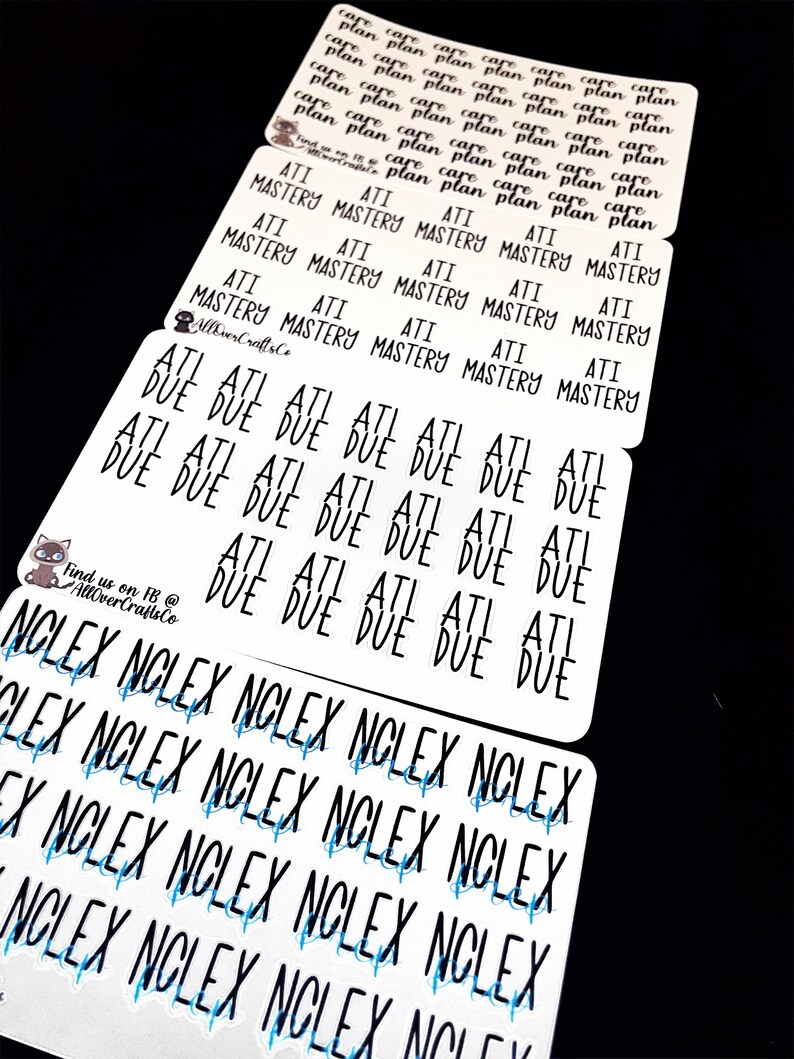 care care care care care care care
plan plan plan plan plan plan plan
care care care care care care care
plan plan plan plan plan plan plan
care care care care care care care
plan plan plan plan plan plan plan
care care care care care care care
plan plan plan plan plan plan plan
care care care care care
plan plan plan plan plan
Find us on FB @
AllOverCraftsCo
ATI ATI ATI ATI ATI
MASTERY MASTERY MASTERY MASTERY MASTERY
ATI ATI ATI ATI ATI
MASTERY MASTERY MASTERY MASTERY MASTERY
ATI ATI ATI ATI ATI
MASTERY MASTERY MASTERY MASTERY MASTERY
AllOverCraftsCo
ATI ATI ATI ATI ATI ATI ATI
DUE DUE DUE DUE DUE DUE DUE
ATI ATI ATI ATI ATI ATI ATI
DUE DUE DUE DUE DUE DUE DUE
ATI ATI ATI ATI ATI
DUE DUE DUE DUE DUE
Find us on FB @
AllOverCraftsCo
NCLEX NCLEX NCLEX NCLEX NCLEX
Prep Prep Prep Prep Prep
CLEX NCLEX NCLEX NCLEX NCLEX
Prep Prep Prep Prep
EX NCLEX NCLEX NCLEX NCLEX
Prep Prep Prep Prep
NCLEX NCLEX NCLEX NCLEX
Prep Prep Prep